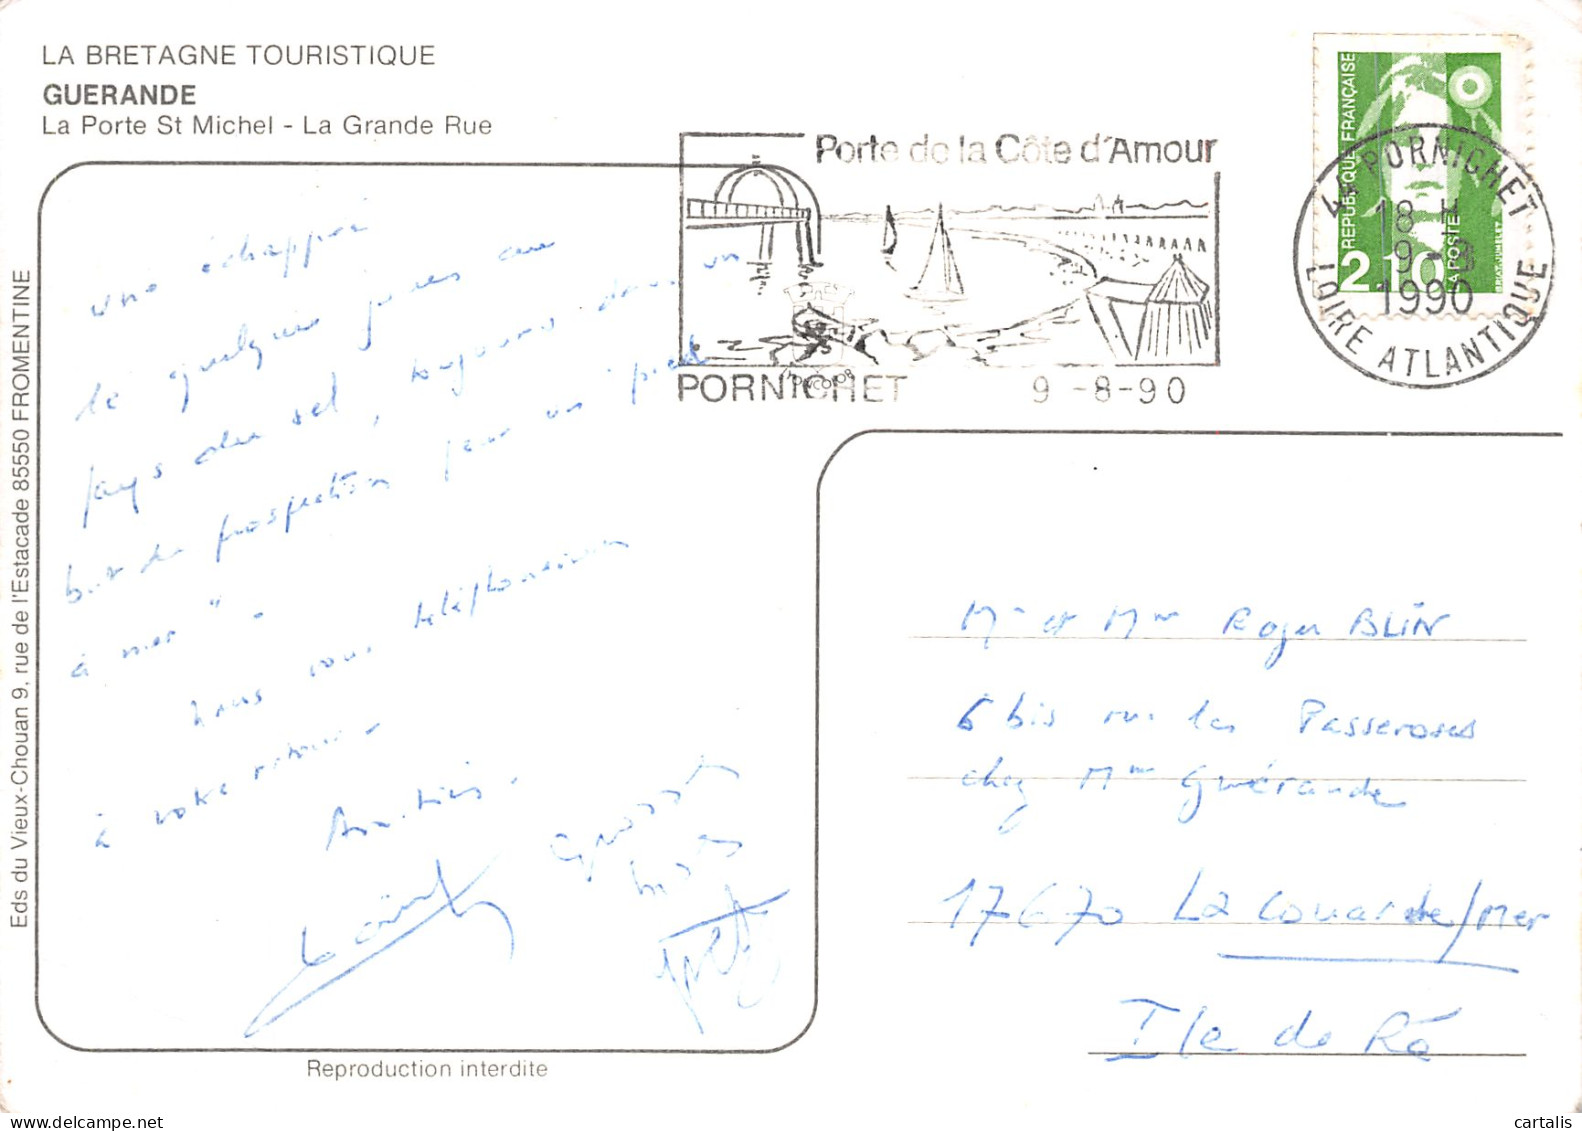 LA BRETAGNE TOURISTIQUE
GUERANDE
La Porte St Michel - La Grande Rue
Porte de la Côte d'Amour
PORNICHET 9-8-90
44 PORNICHET
18 H
9-8
1990
LOIRE ATLANTIQUE
REPUBLIQUE FRANÇAISE
2,10
LA POSTE
Eds du Vieux-Chouan 9, rue de l'Estacade 85550 FROMENTINE
une échappée
de quelques jours au
pays du sel, toujours dans un
but de prospection pour un "pied
à mer".
Nous vous téléphonerons
à votre retour.
Amitiés.
grosses
bises
Mr et Mme Roger BLIN
6 bis rue les Passeroses
chez Mme Guérande
17670 La Couarde/Mer
Ile de Ré
Reproduction interdite
cartalis
delcampe.net